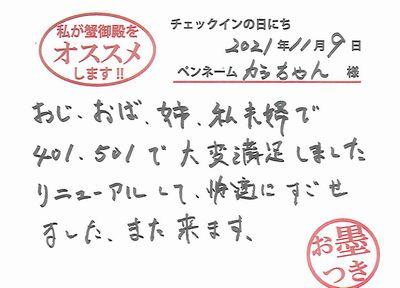 私が蟹御殿を
オススメ
します!!
チェックインの日にち
2021年11月9日
ペンネーム カシちゃん 様
おじ、おば、姉、私夫婦で
401.501で大変満足しました
リニューアルして、快適にすごせ
ました、また来ます。
お墨
つき